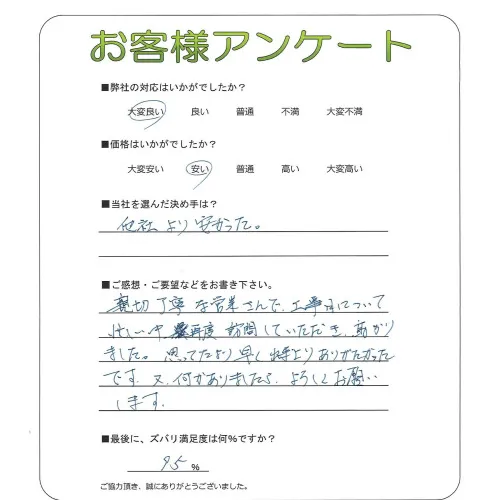 お客様アンケート
■弊社の対応はいかがでしたか?
大変良い 良い 普通 不満 大変不満
■価格はいかがでしたか?
大変安い 安い 普通 高い 大変高い
■当社を選んだ決め手は?
他社より安かった。
■ご感想・ご要望などをお書き下さい。
親切丁寧な営業さんで、工事日について
忙しい中再度訪問していただき、助かり
ました。思ってたより早く何よりありがたかった
です。又、何かありましたら、よろしくお願い
します。
■最後に、ズバリ満足度は何%ですか?
95 %
ご協力頂き、誠にありがとうございました。